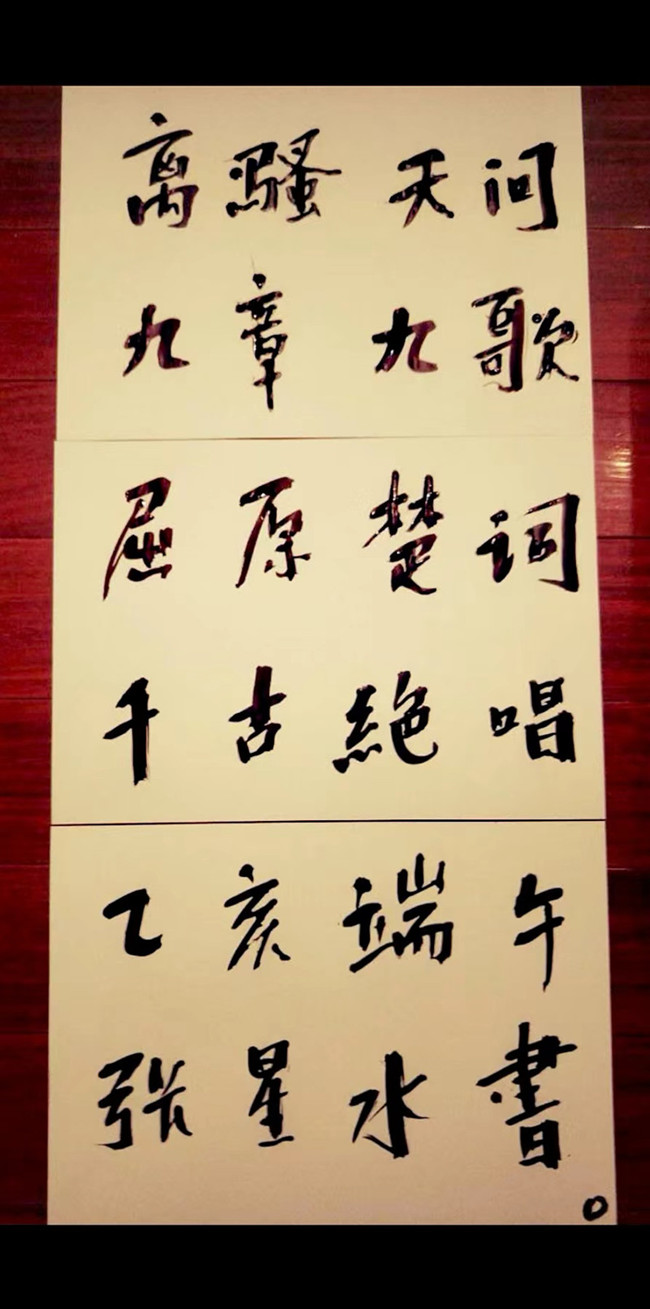 离騷天问
九章九歌
屈原楚词
千古絶唱
乙亥端午
张星水書